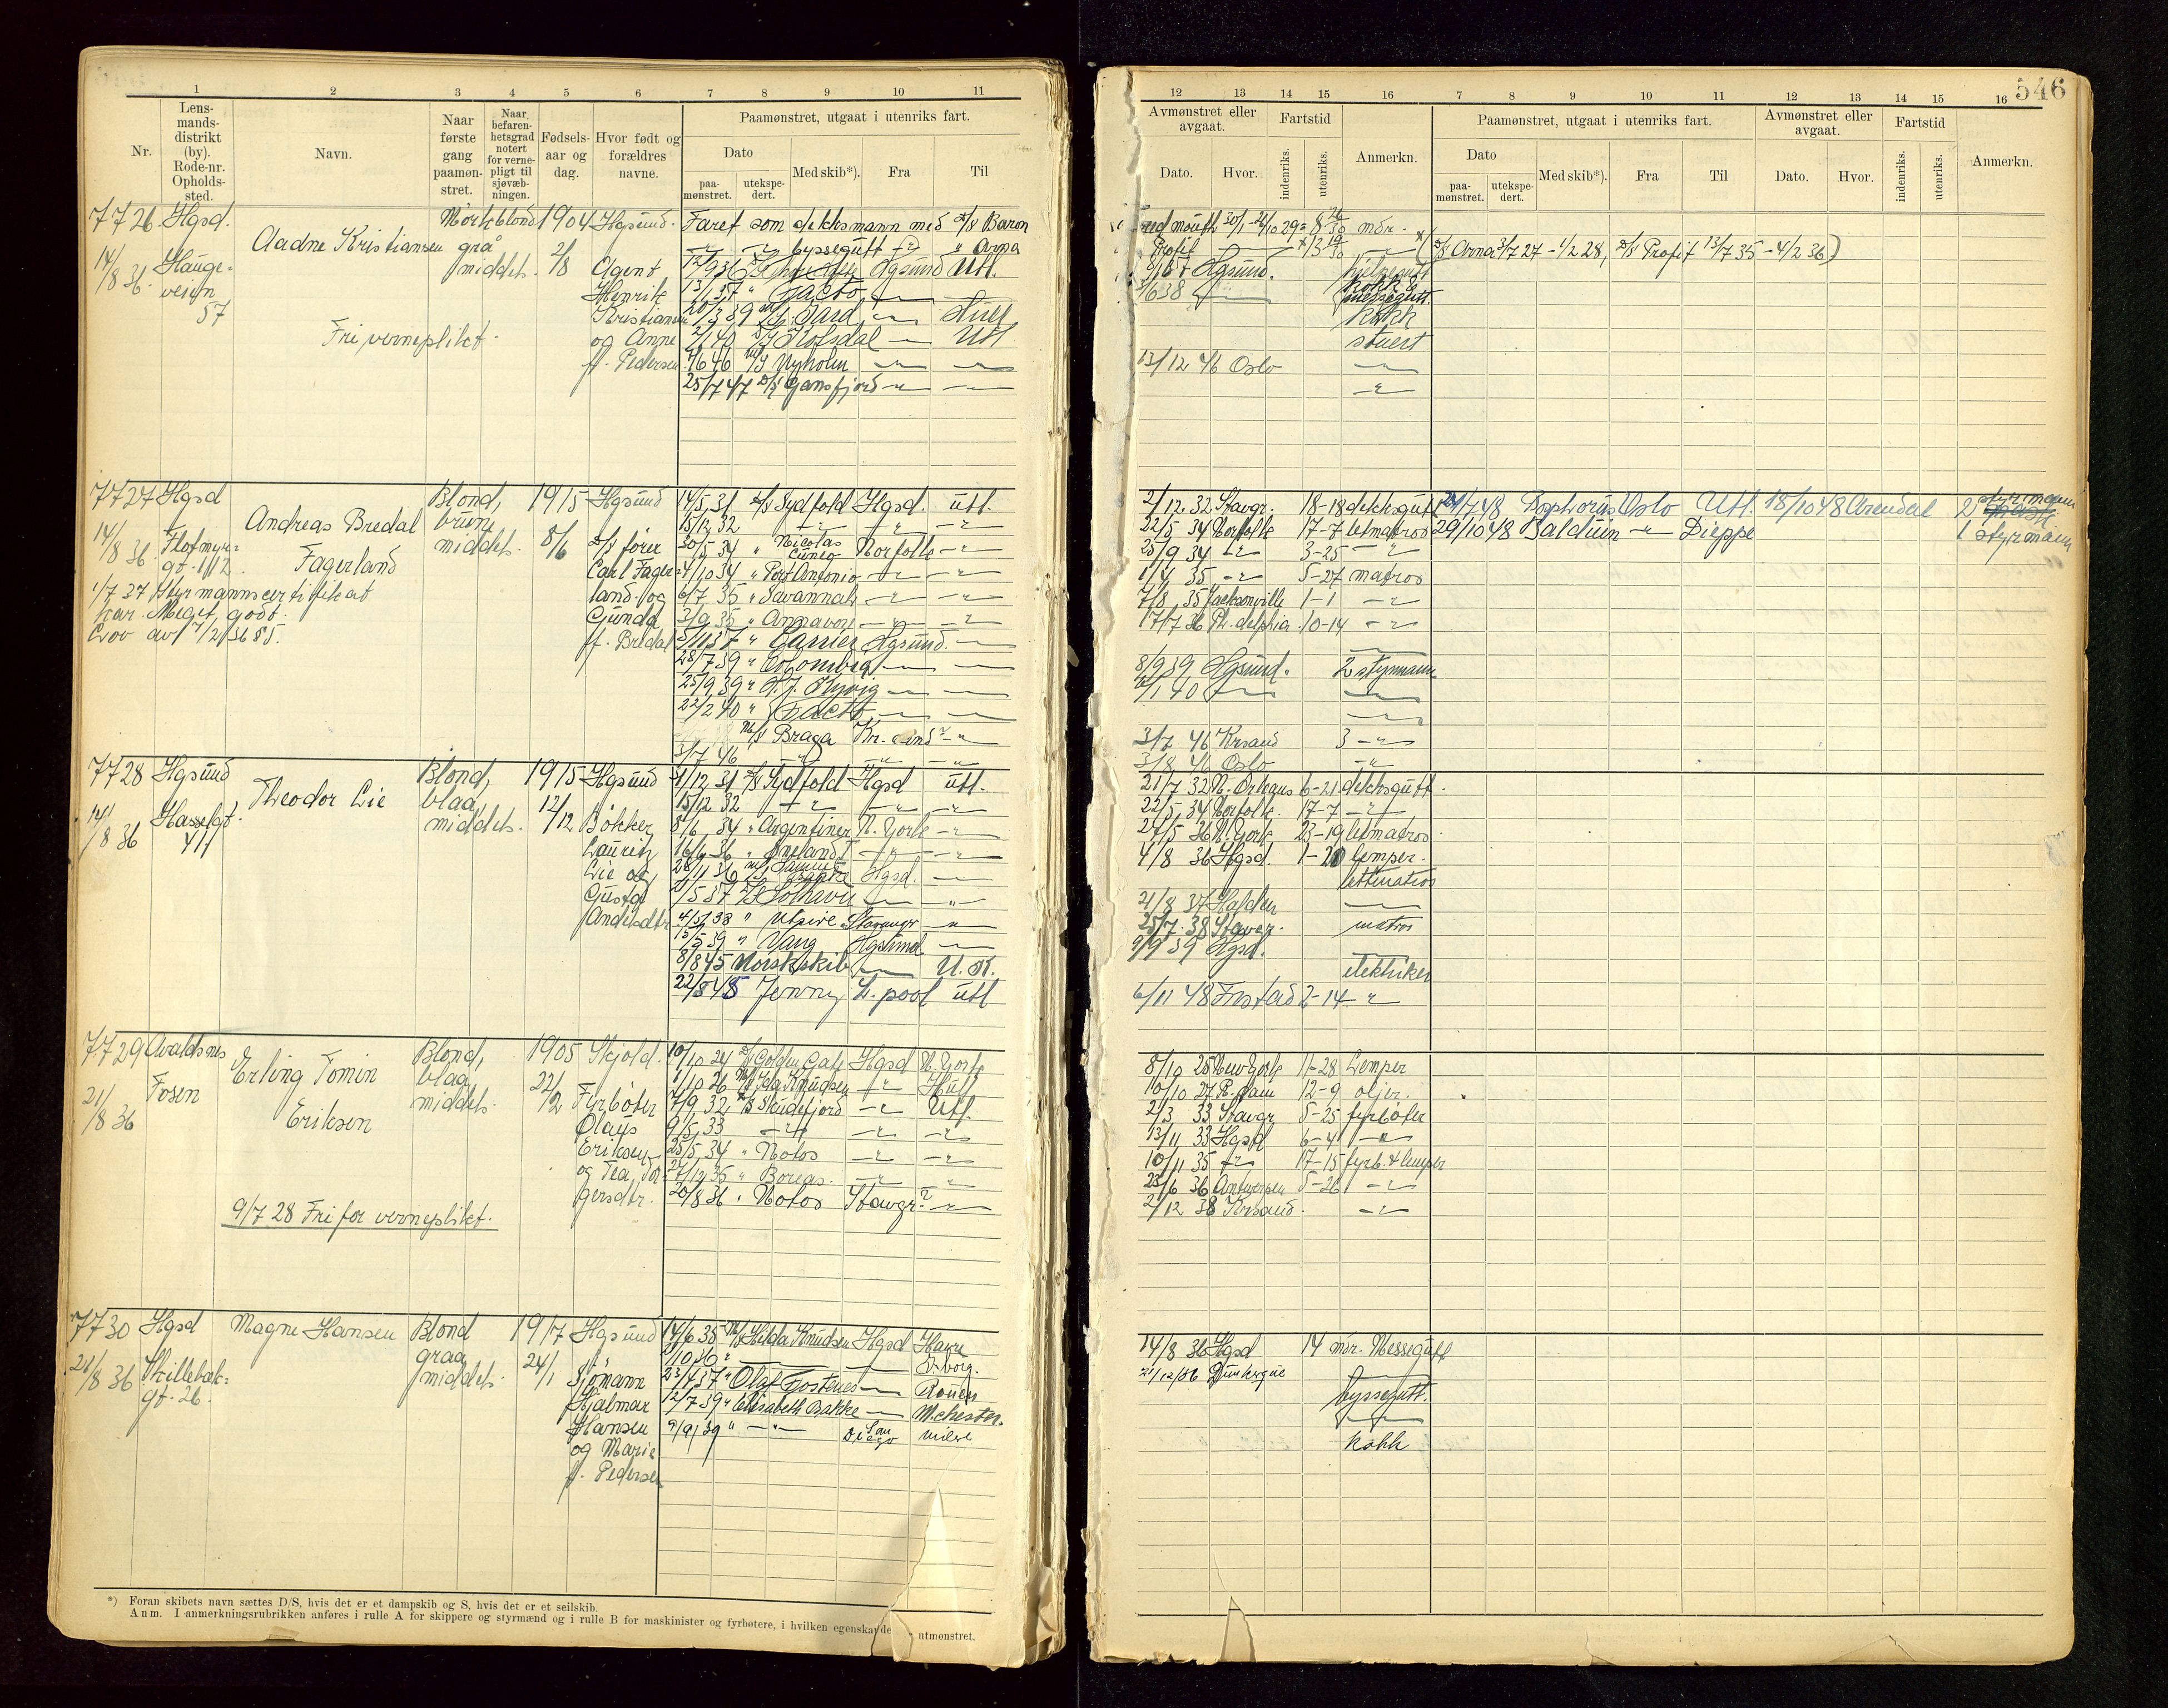 546
1 2 3 4 5 6 7 8 9 10 11
Nr.
Lens-
mands-
distrikt
(by).
Rode-nr.
Opholds-
sted.
Navn.
Naar
første
gang
paamøn-
stret.
Naar
befaren-
hetsgrad
notert
for verne-
pligt til
sjøvæb-
ningen.
Fødsels-
aar og
dag.
Hvor født og
forældres
navne.
Paamønstret, utgaat i utenriks fart.
Dato
paa-
mønstret.
utekspe-
dert.
Med skib*).
Fra
Til
12 13 14 15 16 7 8 9 10 11 12 13 14 15 16
Avmønstret eller
avgaat.
Dato. Hvor.
Fartstid
indenriks.
utenriks.
Anmerkn.
Paamønstret, utgaat i utenriks fart.
Dato
paa-
mønstret.
utekspe-
dert.
Med skib*). Fra Til
Avmønstret eller
avgaat.
Dato. Hvor.
Fartstid
indenriks.
utenriks.
Anmerkn.
7726 Hgsd.
14/8 36 Hauge-
veien
57
Aadne Kristiansen
Fri verneplikt.
Mörkblond
grå
middels.
1904
2/8
Hgsund.
Agent
Henrik
Kristiansen
og Anne
f. Pedersen
Faret som dekksmann med D/S Baron
byssegutt " Arna
Hgsund Utl.
13/1 37 " Facto
20/3 39 Gard Hull
2/1 40 D/S Kofsdal Utl
4/6 46 M/S Nyholm
25/7 47 D/S Gansfjord
mdr.
Profit
(D/S Arna 3/7 27 - 1/2 28, D/S Profit 13/7 35 - 4/2 36)
Hgsund.
6 38
kokk &
messegutt.
kokk
stuert
13/12 46 Oslo
7727 Hgsd
14/8 36 Flotmyr-
gt. 112.
Andreas Bredal
Fagerland
1/7 37 Styrmannscertifikat
kar. Meget godt.
Lov av 7/2 36
Blond,
brune
middels.
1915
8/6
Hgsund
D/S förer
Carl Fager-
land og
Gunda
f. Bredal
14/5 31 D/S Sydfold Hgsd. utl.
15/12 32
30/5 34 " Nicolas
Cuneo Norfolk
4/10 34 " Port Antonio
6/7 35 " Savannah
3/9 35 " Annavore
5/11 37 " Carrier Hgsund.
28/7 39 " Colombia
25/9 39 " H. J. Kyvig
22/2 40 " Facto
M/S Braga Kr. sand
3/7 46
2/12 32 Stavgr. 18-18 dekksgutt
22/5 34 Norfolk 7-7 letmatros
25/9 34 3-25
1/4 35 5-27 matros
7/8 35 Jacksonville 1-1
17/7 36 Ph. delphia 10-14
8/9 39 Hgsund. 2 styrmann
1 40
3/7 46 Krsand 3
3/8 46 Oslo
7 48 Bosphorus Oslo Utl. 18/10 48 Arendal 2 styrmann
29/10 48 Balduin Dieppe 1 styrmann
7728 Hgsund
14/8 36 Hasselgt.
41
Theodor Lie
Blond,
blaa,
middels.
1915
12/12
Hgsund
Bökker
Lauritz
Lie og
Gusta
Andersdtr
31/12 31 D/S Sydfold Hgsd utl.
15/12 32
8/6 34 " Argentiner N. York
16/6 36 " Öneland
28/11 36 Hgsd.
5 37 D/S Solhavn
4/5 38 " Utsire Stavangr
15/5 39 " Vang Hgsund
8/8 45 Norsk skib U. K.
22/8 48 Jenny L. pool utl
21/7 32 N. Orleans 6-21 dekksgutt.
22/5 34 Norfolk 17-7
24/5 36 N. York 23-19 letmatros
4/8 36 Hgsd 1-20 lemper.
lettmatros
21/8 37 Halden
25/7 38 Stavgr. matros
9/9 39 Hgsd.
elektriker
6/11 48 Frstad 2-14
7729 Avaldsnes
21/8 36 Fosen
Erling Tomin
Eriksen
9/7 28 Fri for verneplikt.
Blond,
blaa,
middels.
1905
22/2
Skjold.
Fyrböter
Olaus
Eriksen
og Tea Tor-
gersdtr.
10/10 24 D/S Golden Gate Hgsd N. York
1/10 26 M/S Ida Knudsen Hull
7/9 32 D/S Skudefjord Utl.
9/5 33
25/5 34 " Notos
27/12 35 " Boreas.
20/8 36 " Notos Stavgr.
8/10 25 New York 11-28 Lemper
10/10 27 R. dam 12-9 oljer.
2/3 33 Stavgr 5-25 fyrböter
13/11 33 Hgsd 6-4
10/11 35 17-15 fyrb. & lemper
23/6 36 Antwerpen 5-26
2/12 38 Krsand.
7730 Hgsd
21/8 36 Skillebek-
gt. 26.
Magne Hansen
Blond
graa
middels.
1917
24/1
Hgsund
Sjömann
Hjalmar
Hansen
og Marie
f. Pedersen
14/6 35 M/S Hilda Knudsen Hgsd Havre
2/10 36
23/4 37 " Olaf Fostenes Rouen
12/7 39 " Elisabeth Bakke M.chester.
9/9 39 " San
Diego
14/8 36 Hgsd 14 mdr. Messegutt
21/12/86 Dunkerque
byssegutt.
kokk
*) Foran skibets navn sættes D/S, hvis det er et dampskib og S, hvis det er et seilskib.
Anm. I anmerkningsrubrikken anføres i rulle A for skippere og styrmænd og i rulle B for maskinister og fyrbøtere, i hvilken egenskap de utmønstret.